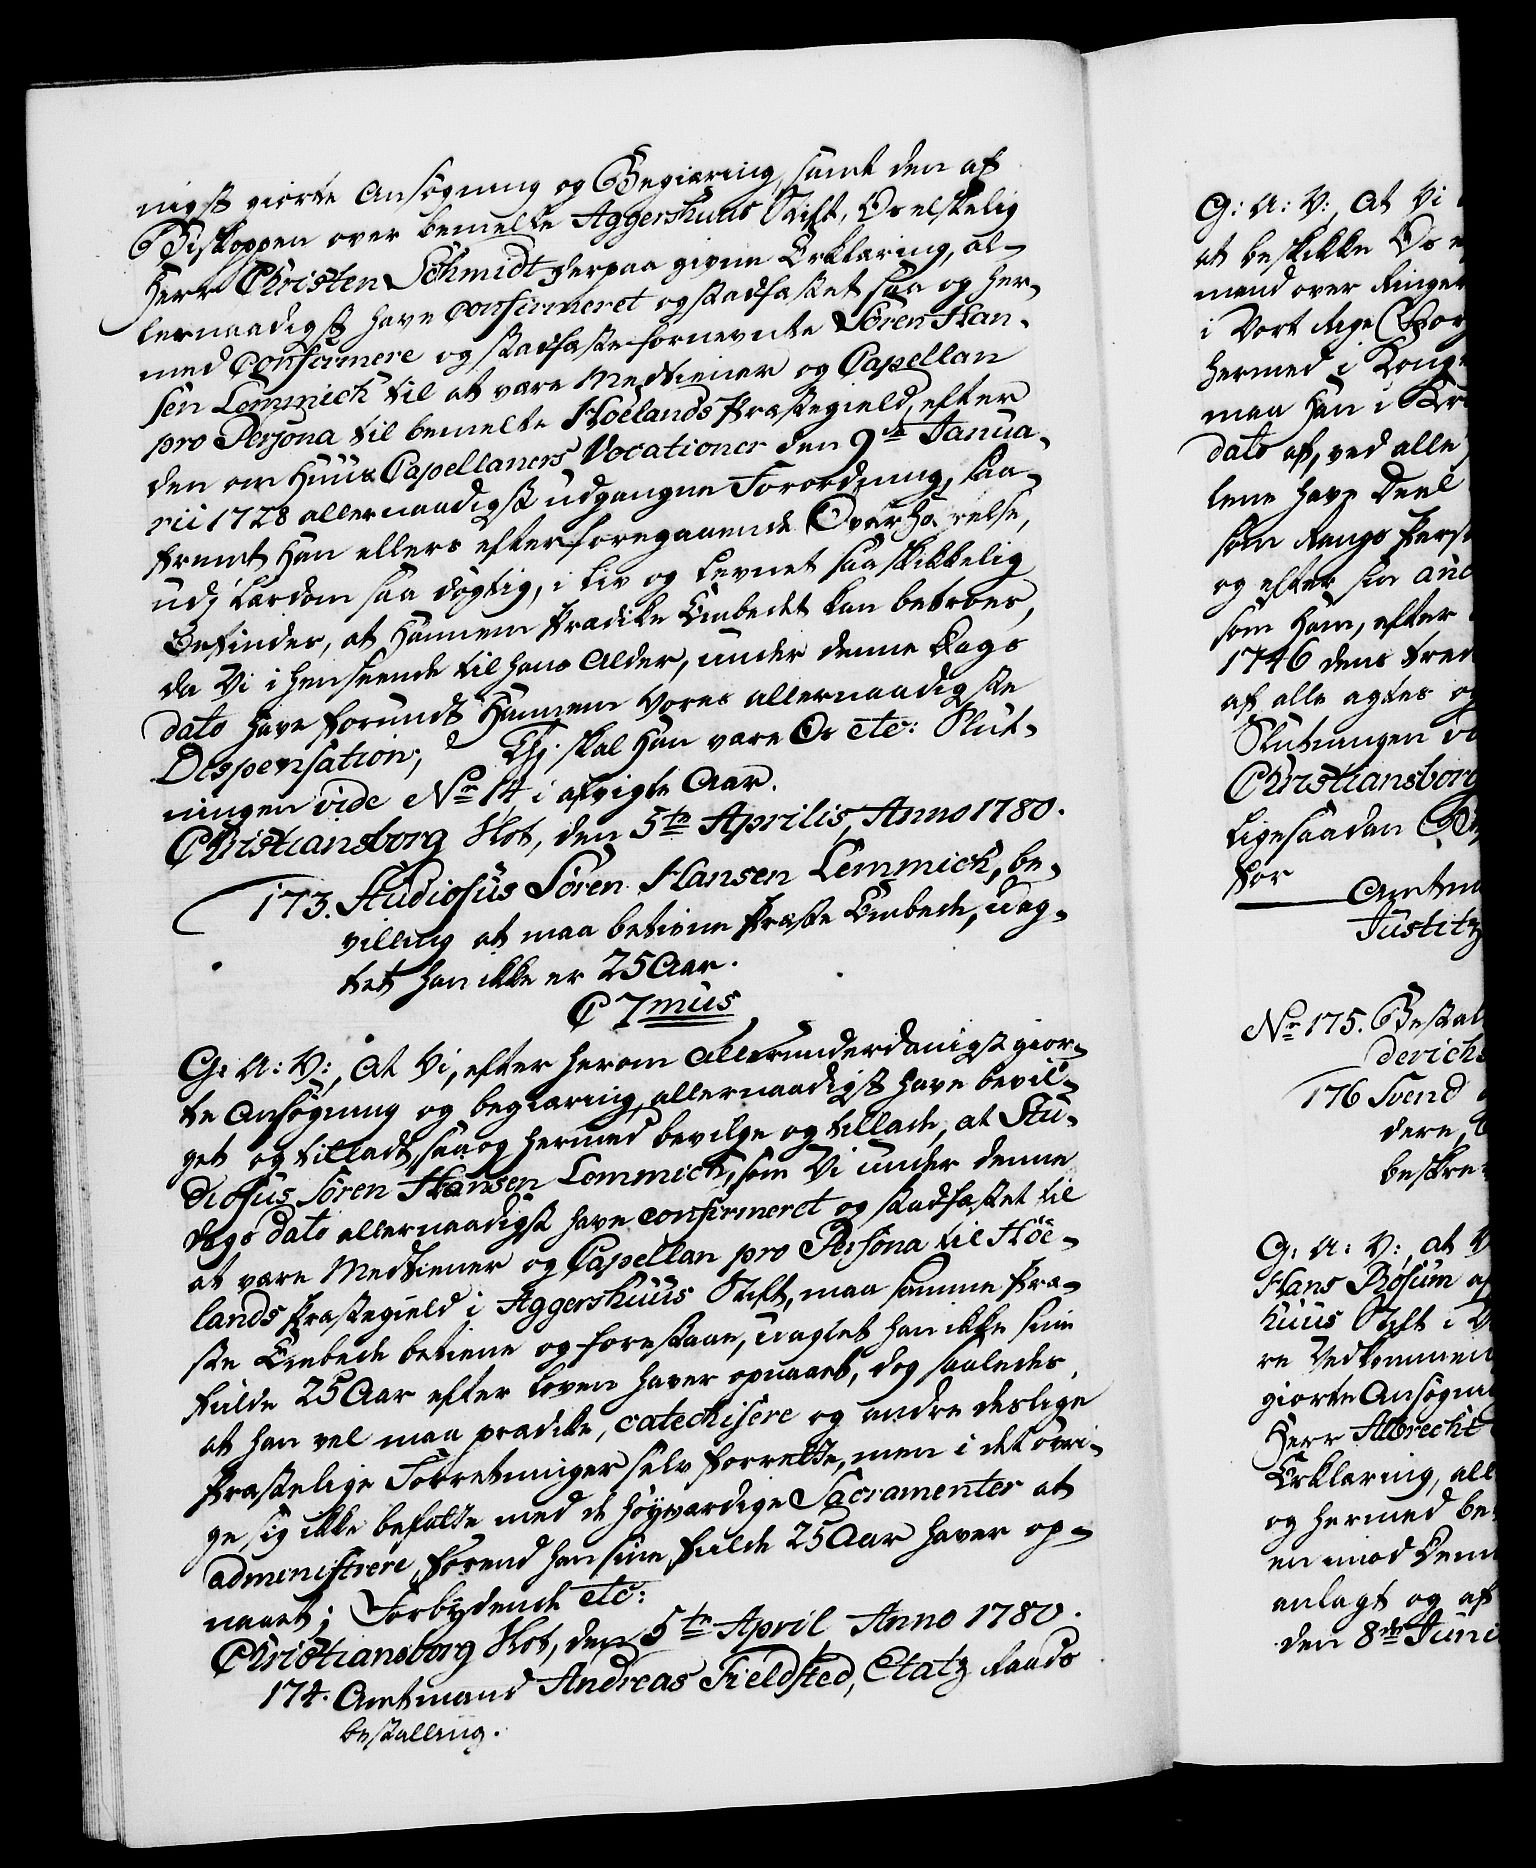 nigst giorte Ansøgning og Begiæring, samt den af
Biskoppen over bemelte Aggershuus Stift, Os elskelig
Herr Christen Schmidt herpaa givne Erklæring, al-
lernaadigst have confirmeret og stadfæstet, saa og her-
med confirmere og stadfæste fornevnte Sören Han-
sen Lemmich til at være Medtiener og Capellan
pro Persona til bemelte Hoelands Præstegield, efter
den om Huus Capellaners Vocationer den 9de Janua-
rii 1728 allernaadigst udgangne Forordning, saa-
fremt Han ellers efter foregaaende Overhørelse,
udj Lærdom saa dygtig, i Liv og Levnet saa skikkelig
Befindes, at Hannem Prædike Embedet kan betroes,
da Vi i Henseende til hans Alder, under denne Dags
dato have forundt Hannem Vores allernaadigste
Dispensation; Thj skal Han være Os etc: Slut-
ningen vide No 14 i afvigte Aar.
Christiansborg Slot, den 5te Aprilis, Anno 1780.
173. Studiosus Sören Hansen Lemmich, be-
villing at maa betiene Præste Embede, uag-
tet han ikke er 25 Aar.
C 7mus
G: A: V:, At Vi, efter herom Allerunderdanigst gior-
te Ansøgning og begiæring, allernaadigst have bevil-
get og tilladt, saa og hermed bevilge og tillade, at Stu-
diosus Sören Hansen Lemmich, som Vi under denne
Dags dato allernaadigst have confirmeret og stadfæstet til
at være Medtiener og Capellan pro Persona til Höe-
lands Præstegield i Aggershuus Stift, maa samme Præ-
ste Embede betiene og forestaae, uagtet han ikke sine
fulde 25 Aar efter Loven haver opnaaet, dog saaledes,
at han vel maa prædike, catechisere og andre deslige
Præstelige Forretninger selv forrette, men i det øvri-
ge sig ikke befatte med de høyværdige Sacramenter at
administrere, førend han sine fulde 25 Aar haver op-
naaet; Forbydende etc:
Christiansborg Slot, den 5te April Anno 1780.
174. Amtmand Andreas Fieldsted, Etatz Raads
bestalling.
G: A: V:, At Vi
at beskikke Os
mand over Ringe
i Vort Rige
hermed i
maa Han i
dato af, ved alle
lene have Deel
som Rangs
og efter sin anc
som Ham, efter
1746 dens
af alle agtes og
Slutningen
Christiansborg
Ligesaadan
for Amtm
Justitz
No 175. Bestal
derich
176 Svend
dere,
beskre
G: A: V:, at V
Hans Bösum af
huus Stift i
re Vedkommen
giorte Ansøgn
Herr Albrecht
Erklæring, all
og hermed be
en imod
anlagt og af
den 8de Juni